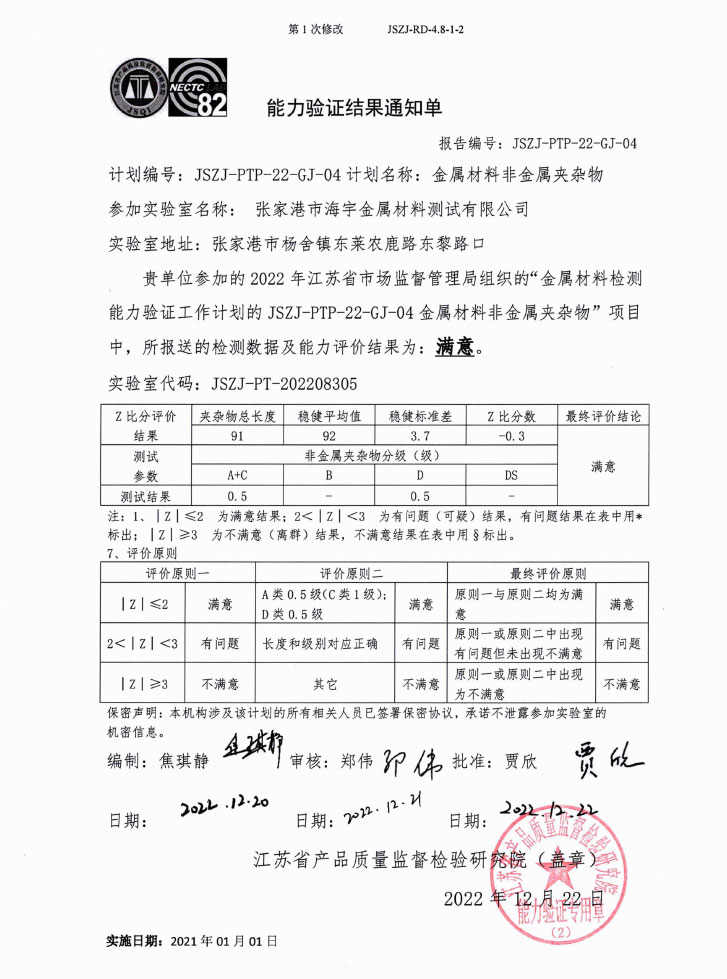 第 1 次修改 JSZJ-RD-4.8-1-2
JSQI
NECTC LAB
82
能力验证结果通知单
报告编号：JSZJ-PTP-22-GJ-04
计划编号：JSZJ-PTP-22-GJ-04 计划名称：金属材料非金属夹杂物
参加实验室名称： 张家港市海宇金属材料测试有限公司
实验室地址：张家港市杨舍镇东莱农鹿路东黎路口
贵单位参加的 2022 年江苏省市场监督管理局组织的“金属材料检测
能力验证工作计划的 JSZJ-PTP-22-GJ-04 金属材料非金属夹杂物”项目
中，所报送的检测数据及能力评价结果为：满意。
实验室代码：JSZJ-PT-202208305
Z 比分评价 夹杂物总长度 稳健平均值 稳健标准差 Z 比分数 最终评价结论
结果 91 92 3.7 -0.3
测试 非金属夹杂物分级（级） 满意
参数 A+C B D DS
测试结果 0.5 - 0.5 -
注：1、｜Z｜≤2 为满意结果；2<｜Z｜<3 为有问题（可疑）结果，有问题结果在表中用*
标出；｜Z｜≥3 为不满意（离群）结果，不满意结果在表中用§标出。
7、评价原则
评价原则一 评价原则二 最终评价原则
｜Z｜≤2 满意 A 类 0.5 级(C 类 1 级)； 满意 原则一与原则二均为满 满意
D 类 0.5 级 意
2<｜Z｜<3 有问题 长度和级别对应正确 有问题 原则一或原则二中出现 有问题
有问题但未出现不满意
｜Z｜≥3 不满意 其它 不满意 原则一或原则二中出现 不满意
为不满意
保密声明：本机构涉及该计划的所有相关人员已签署保密协议，承诺不泄露参加实验室的
机密信息。
编制：焦琪静 焦琪静 审核：郑伟 郑伟 批准：贾欣 贾欣
日期： 2022.12.20 日期：2022.12.21 日期： 2022.12.22
江苏省产品质量监督检验研究院（盖章）
2022 年 12 月 22 日
江苏省产品质量监督检验研究院
能力验证专用章
(2)
实施日期：2021 年 01 月 01 日